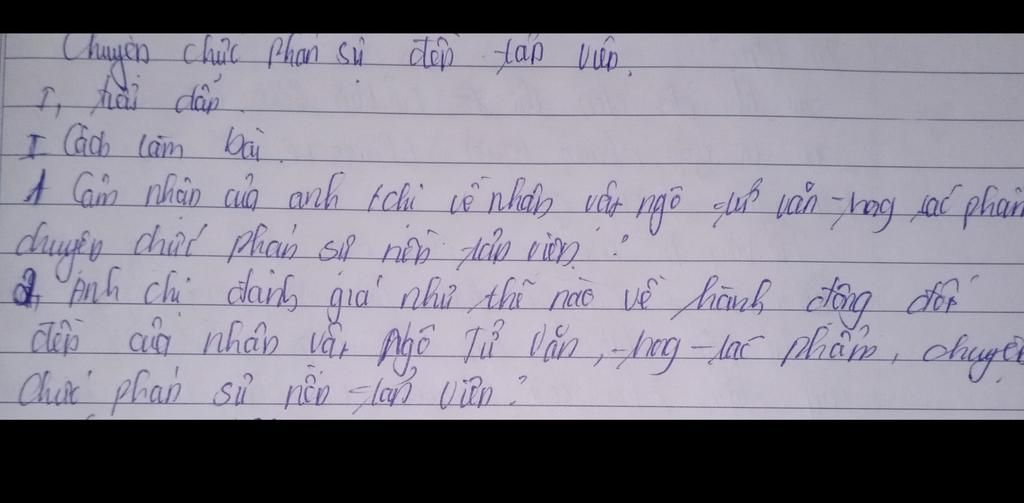 Chuyện chức phán sự đền tản viên.
I, hỏi đáp.
I Cách làm bài.
1 Cảm nhận của anh /chị về nhân vật ngô tử văn trog tác phẩm
chuyện chức phán sự nền tản viên ?
2, Anh chị đánh giá như thế nào về hành động đốt
đền của nhân vật Ngô Tử Văn, trog tác phẩm, chuyện
Chức phán sự nền tản Viên?